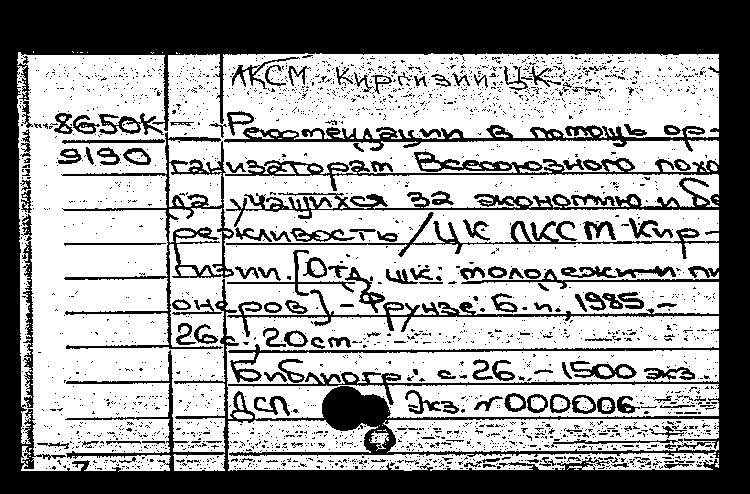 ЛКСМ Киргизии. ЦК
8650К Рекомендации в помощь ор-
9190 ганизаторам Всесоюзного похо
да учащихся за экономию и бе
режливость / ЦК ЛКСМ Кир-
гизии. [Отд. шк. молодежи и пи
онеров]. - Фрунзе: Б.и., 1985. -
26с.; 20см
Библиогр.: с. 26. - 1500 экз.
ДСП. Экз. n 000006.